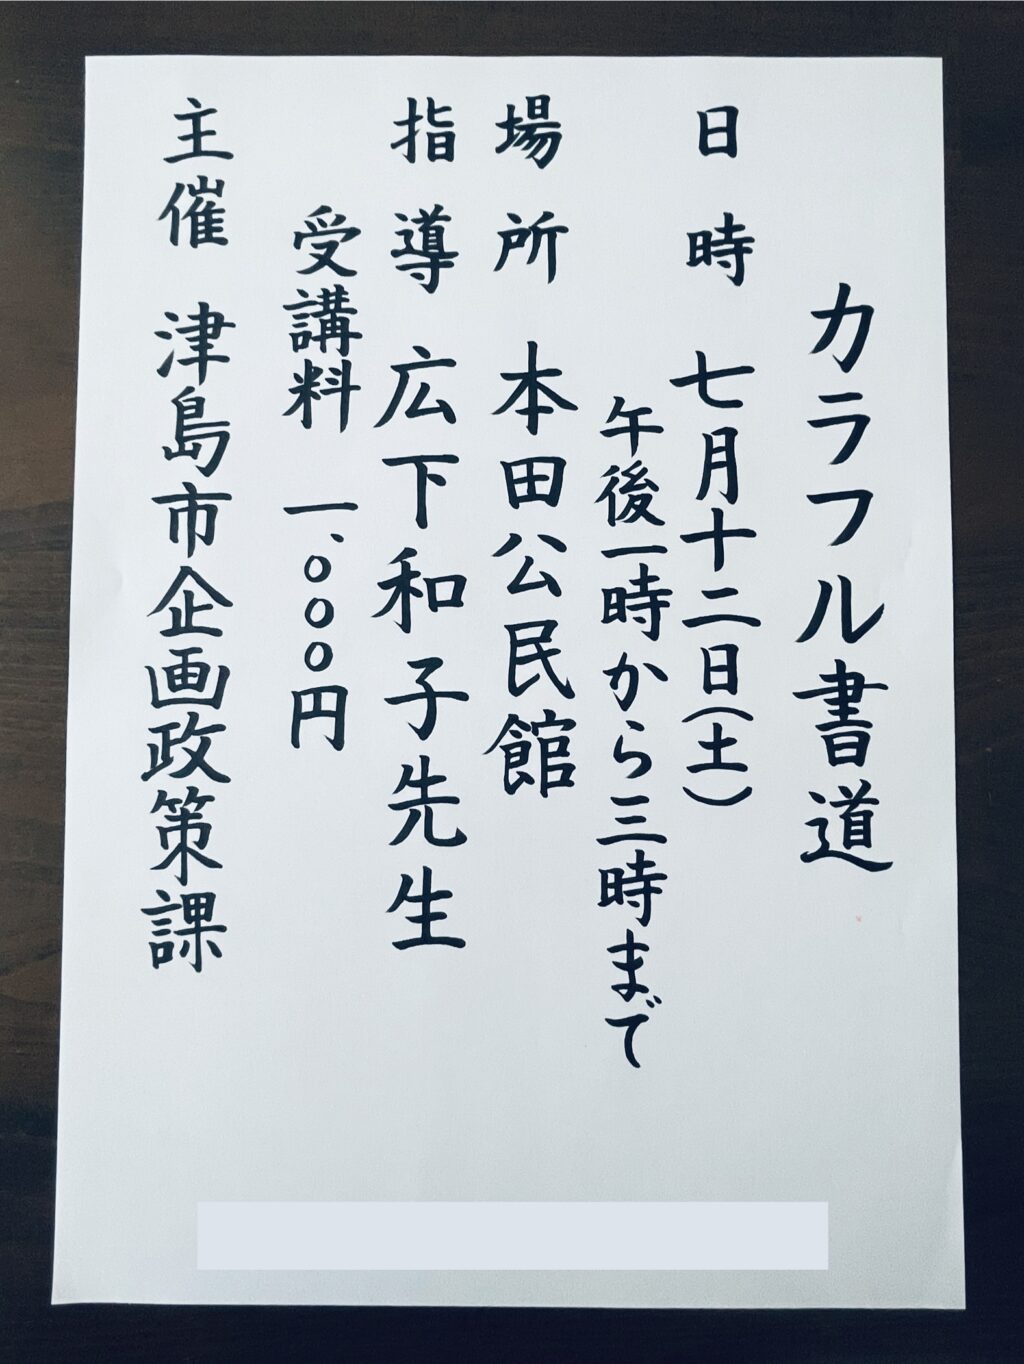 カラフル書道
日時 七月十二日(土)
午後一時から三時まで
場所 本田公民館
指導 広下和子先生
受講料 一、〇〇〇円
主催 津島市企画政策課